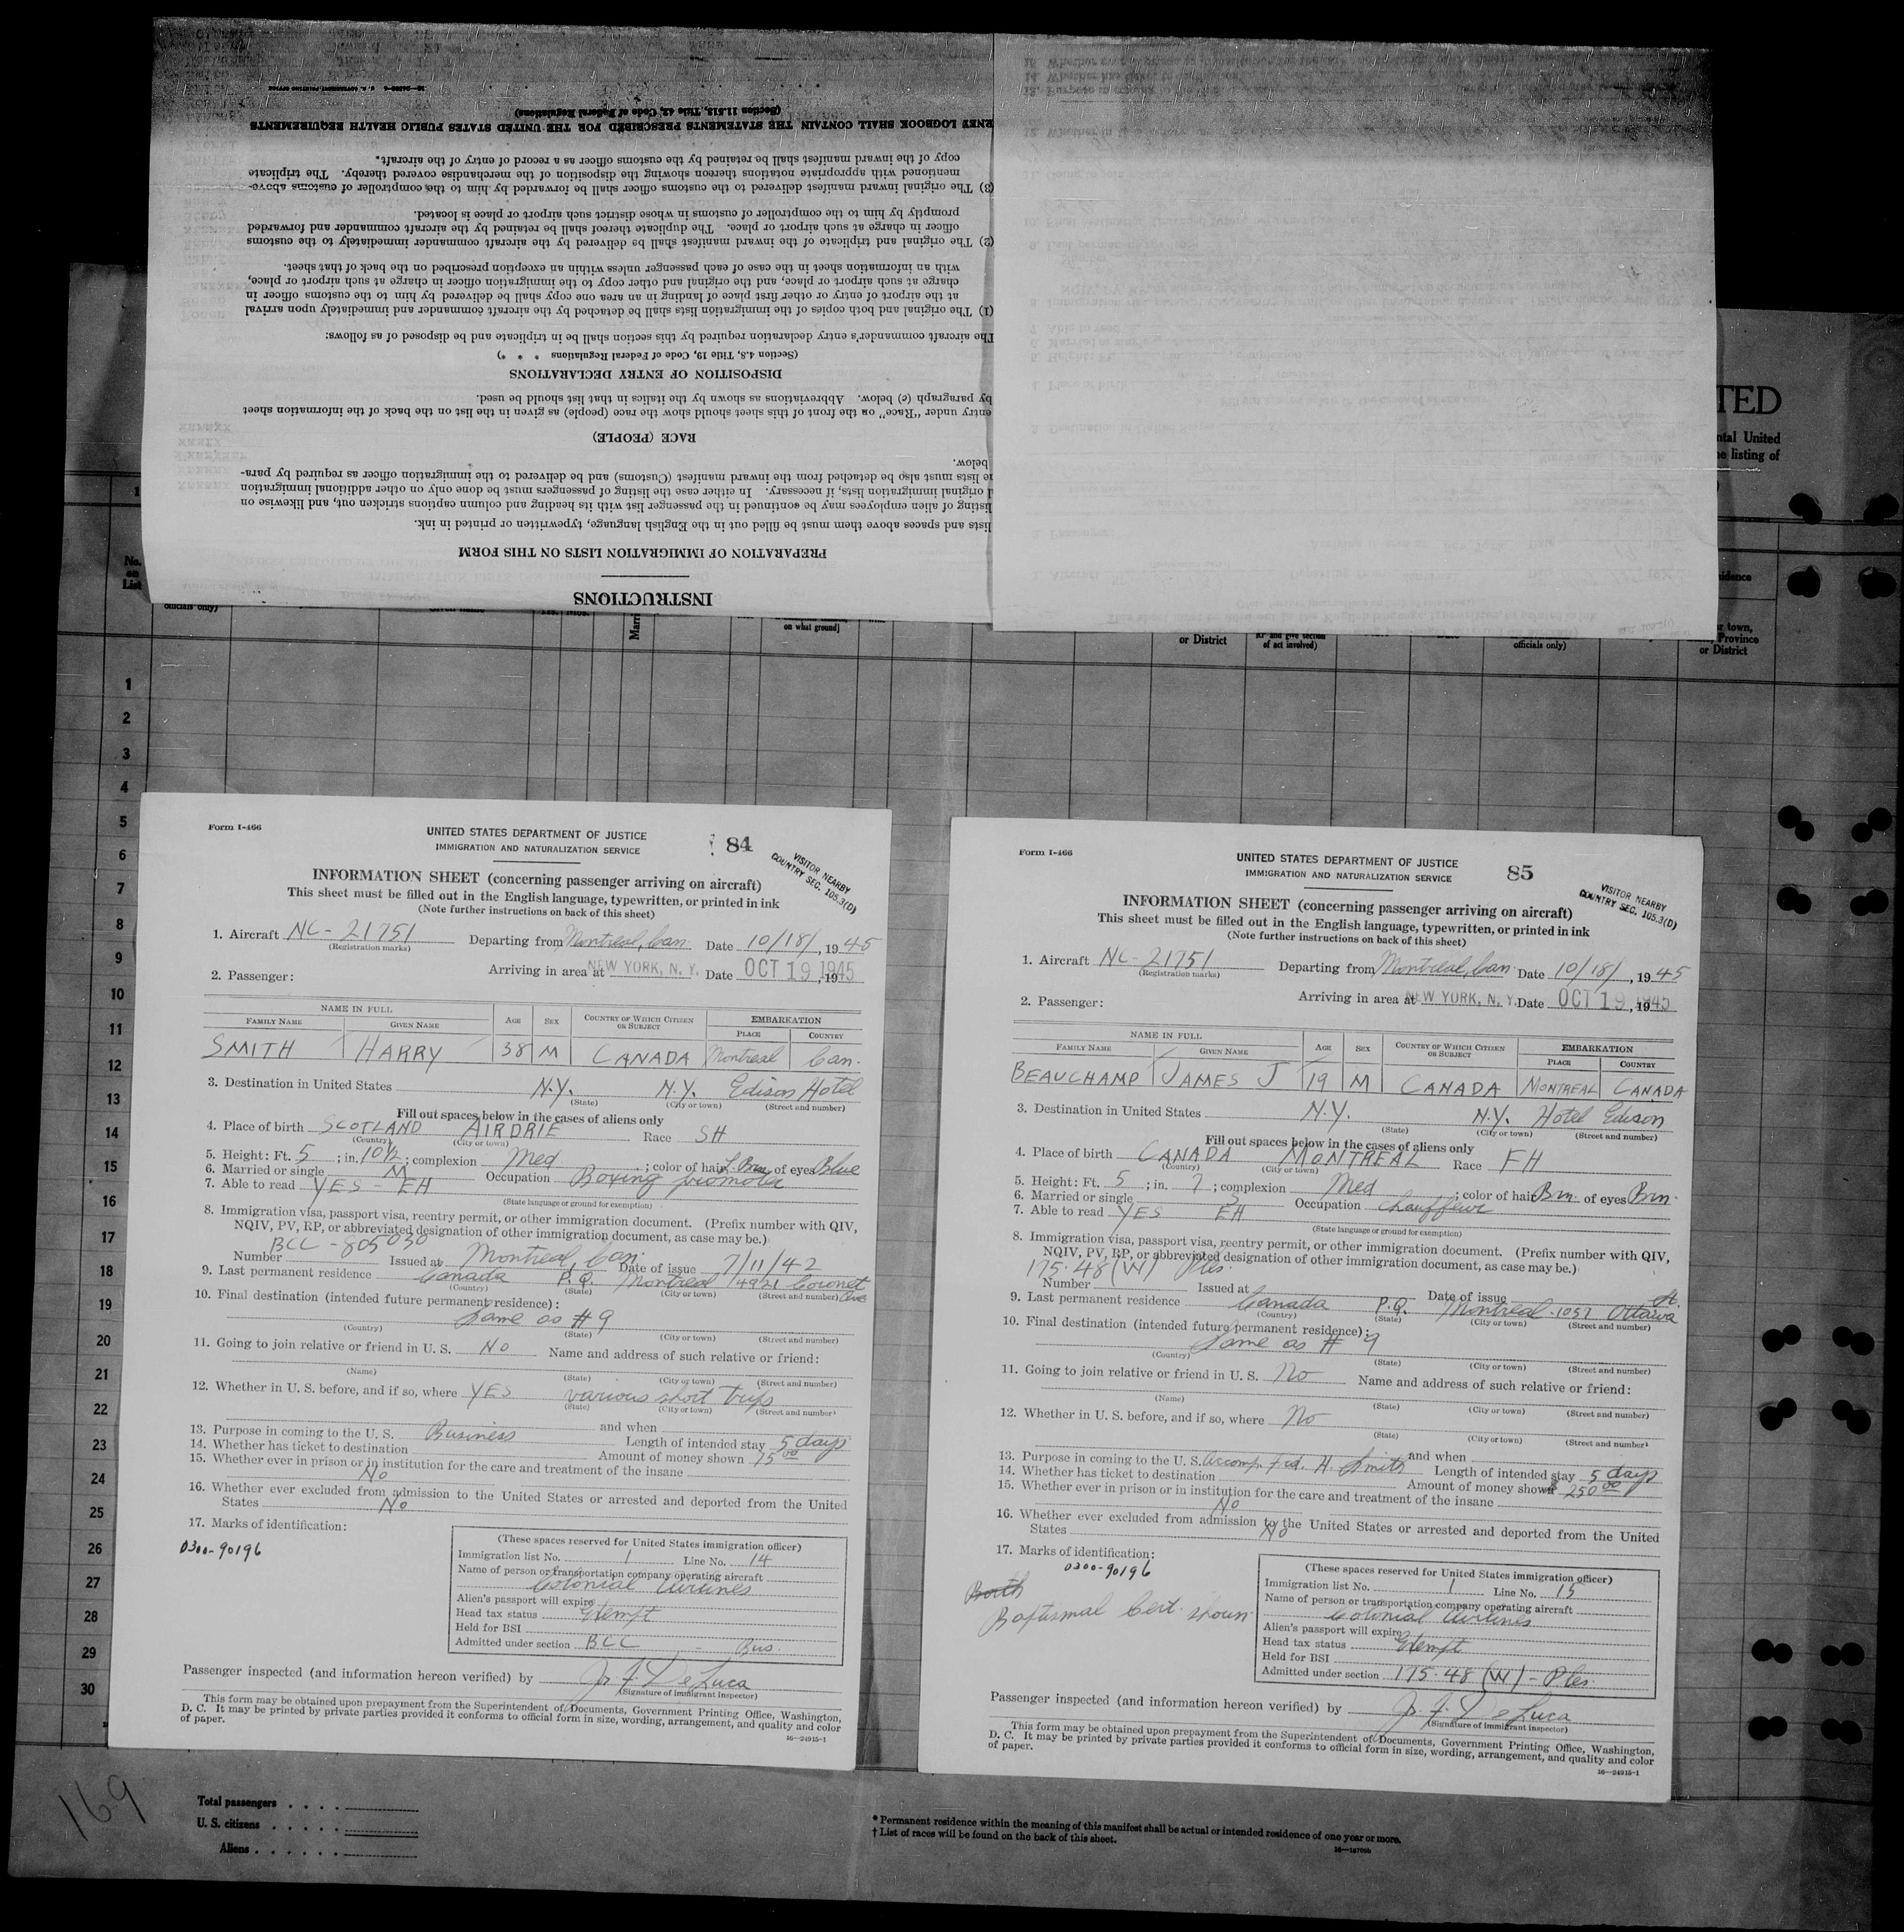 INSTRUCTIONS
PREPARATION OF IMMIGRATION LISTS ON THIS FORM
lists and spaces above them must be filled out in the English language, typewritten or printed in ink.
listing of alien employees may be continued in the passenger list with its heading and column captions stricken out, and likewise on
original immigration lists, if necessary. In either case the listing of passengers must be done only on other additional immigration
lists must also be detached from the inward manifest (Customs) and be delivered to the immigration officer as required by para-
below.
RACE (PEOPLE)
entry under "Race" on the front of this sheet should show the race (people) as given in the list on the back of the information sheet
by paragraph (c) below. Abbreviations as shown by the italics in that list should be used.
DISPOSITION OF ENTRY DECLARATIONS
(Section 4.8, Title 19, Code of Federal Regulations * * *)
The aircraft commander's entry declaration required by this section shall be in triplicate and be disposed of as follows:
(1) The original and both copies of the immigration lists shall be detached by the aircraft commander and immediately upon arrival
at the airport of entry or other first place of landing in an area one copy shall be delivered by him to the customs officer in
charge at such airport or place, and the original and other copy to the immigration officer in charge at such airport or place,
with an information sheet in the case of each passenger unless within an exception prescribed on the back of that sheet.
(2) The original and triplicate of the inward manifest shall be delivered by the aircraft commander immediately to the customs
officer in charge at such airport or place. The duplicate thereof shall be retained by the aircraft commander and forwarded
promptly by him to the comptroller of customs in whose district such airport or place is located.
(3) The original inward manifest delivered to the customs officer shall be forwarded by him to the comptroller of customs above-
mentioned with appropriate notations thereon showing the disposition of the merchandise covered thereby. The triplicate
copy of the inward manifest shall be retained by the customs officer as a record of entry of the aircraft.
RNEY LOGBOOK SHALL CONTAIN THE STATEMENTS PRESCRIBED FOR THE UNITED STATES PUBLIC HEALTH REQUIREMENTS
(Section 11.513, Title 42, Code of Federal Regulations)
TED
ntal United
e listing of
No.
on
List
officials only)
on what ground]
or District
RP and give section
of act involved)
officials only)
idence
r town,
Province
or District
1
2
3
4
5
6
7
8
9
10
11
12
13
14
15
16
17
18
19
20
21
22
23
24
25
26
27
28
29
30
Form I-466
UNITED STATES DEPARTMENT OF JUSTICE
IMMIGRATION AND NATURALIZATION SERVICE
84
VISITOR NEARBY
COUNTRY SEC. 105.3(D)
INFORMATION SHEET (concerning passenger arriving on aircraft)
This sheet must be filled out in the English language, typewritten, or printed in ink
(Note further instructions on back of this sheet)
1. Aircraft NC-21751 Departing from Montreal, Can. Date 10/18/, 1945
(Registration marks)
Arriving in area at NEW YORK, N. Y. Date OCT 19 1945, 19
2. Passenger:
NAME IN FULL
FAMILY NAME GIVEN NAME AGE SEX COUNTRY OF WHICH CITIZEN OR SUBJECT EMBARKATION PLACE COUNTRY
SMITH HARRY 38 M CANADA Montreal Can.
3. Destination in United States N.Y. N.Y. Edison Hotel
(State) (City or town) (Street and number)
Fill out spaces below in the cases of aliens only
4. Place of birth SCOTLAND AIRDRIE Race SH
(Country) (City or town)
5. Height: Ft. 5; in. 10½; complexion Med; color of hair L. Brn of eyes Blue
6. Married or single M Occupation Boxing promoter
7. Able to read YES - EH
(State language or ground for exemption)
8. Immigration visa, passport visa, reentry permit, or other immigration document. (Prefix number with QIV,
NQIV, PV, RP, or abbreviated designation of other immigration document, as case may be.)
BCC - 805030
Number Issued at Montreal, Can. Date of issue 7/11/42
9. Last permanent residence Canada P.Q. Montreal 4921 Coronet Ave
(Country) (State) (City or town) (Street and number)
10. Final destination (intended future permanent residence):
Same as #9
(Country) (State) (City or town) (Street and number)
11. Going to join relative or friend in U. S. No Name and address of such relative or friend:
(Name) (State) (City or town) (Street and number)
12. Whether in U. S. before, and if so, where YES various short trips
(State) (City or town) (Street and number)
and when
13. Purpose in coming to the U. S. Business Length of intended stay 5 days
14. Whether has ticket to destination Amount of money shown 75 00
15. Whether ever in prison or in institution for the care and treatment of the insane
No
16. Whether ever excluded from admission to the United States or arrested and deported from the United
States No
17. Marks of identification:
0300-90196
(These spaces reserved for United States immigration officer)
Immigration list No. 1 Line No. 14
Name of person or transportation company operating aircraft
Colonial Airlines
Alien's passport will expire
Head tax status Exempt
Held for BSI
Admitted under section BCC - Bus.
Passenger inspected (and information hereon verified) by Jr. F. DeLuca
(Signature of immigrant inspector)
This form may be obtained upon prepayment from the Superintendent of Documents, Government Printing Office, Washington,
D. C. It may be printed by private parties provided it conforms to official form in size, wording, arrangement, and quality and color
of paper.
16—24915-1
Form I-466
UNITED STATES DEPARTMENT OF JUSTICE
IMMIGRATION AND NATURALIZATION SERVICE
85
VISITOR NEARBY
COUNTRY SEC. 105.3(D)
INFORMATION SHEET (concerning passenger arriving on aircraft)
This sheet must be filled out in the English language, typewritten, or printed in ink
(Note further instructions on back of this sheet)
1. Aircraft NC-21751 Departing from Montreal, Can. Date 10/18/, 1945
(Registration marks)
Arriving in area at NEW YORK, N. Y. Date OCT 19 1945, 19
2. Passenger:
NAME IN FULL
FAMILY NAME GIVEN NAME AGE SEX COUNTRY OF WHICH CITIZEN OR SUBJECT EMBARKATION PLACE COUNTRY
BEAUCHAMP JAMES J 19 M CANADA MONTREAL CANADA
3. Destination in United States N.Y. N.Y. Hotel Edison
(State) (City or town) (Street and number)
Fill out spaces below in the cases of aliens only
4. Place of birth CANADA MONTREAL Race FH
(Country) (City or town)
5. Height: Ft. 5; in. 7; complexion Med; color of hair Brn. of eyes Brn.
6. Married or single S Occupation Chauffeur
7. Able to read YES EH
(State language or ground for exemption)
8. Immigration visa, passport visa, reentry permit, or other immigration document. (Prefix number with QIV,
NQIV, PV, RP, or abbreviated designation of other immigration document, as case may be.)
175.48 (W) Ples.
Number Issued at Date of issue
9. Last permanent residence Canada P.Q. Montreal 1057 Ottawa St.
(Country) (State) (City or town) (Street and number)
10. Final destination (intended future permanent residence):
Same as #9
(Country) (State) (City or town) (Street and number)
11. Going to join relative or friend in U. S. No Name and address of such relative or friend:
(Name) (State) (City or town) (Street and number)
12. Whether in U. S. before, and if so, where No
(State) (City or town) (Street and number)
and when
13. Purpose in coming to the U. S. Accomp. frd. H. Smith Length of intended stay 5 days
14. Whether has ticket to destination Amount of money shown $250 00
15. Whether ever in prison or in institution for the care and treatment of the insane
No
16. Whether ever excluded from admission to the United States or arrested and deported from the United
States No
17. Marks of identification:
0300-90196
Birth
Baptismal Cert. shown
(These spaces reserved for United States immigration officer)
Immigration list No. 1 Line No. 15
Name of person or transportation company operating aircraft
Colonial Airlines
Alien's passport will expire
Head tax status Exempt
Held for BSI
Admitted under section 175.48 (W) - Ples.
Passenger inspected (and information hereon verified) by Jr. F. DeLuca
(Signature of immigrant inspector)
This form may be obtained upon prepayment from the Superintendent of Documents, Government Printing Office, Washington,
D. C. It may be printed by private parties provided it conforms to official form in size, wording, arrangement, and quality and color
of paper.
16—24915-1
169
Total passengers
U. S. citizens
Aliens
* Permanent residence within the meaning of this manifest shall be actual or intended residence of one year or more.
† List of races will be found on the back of this sheet.